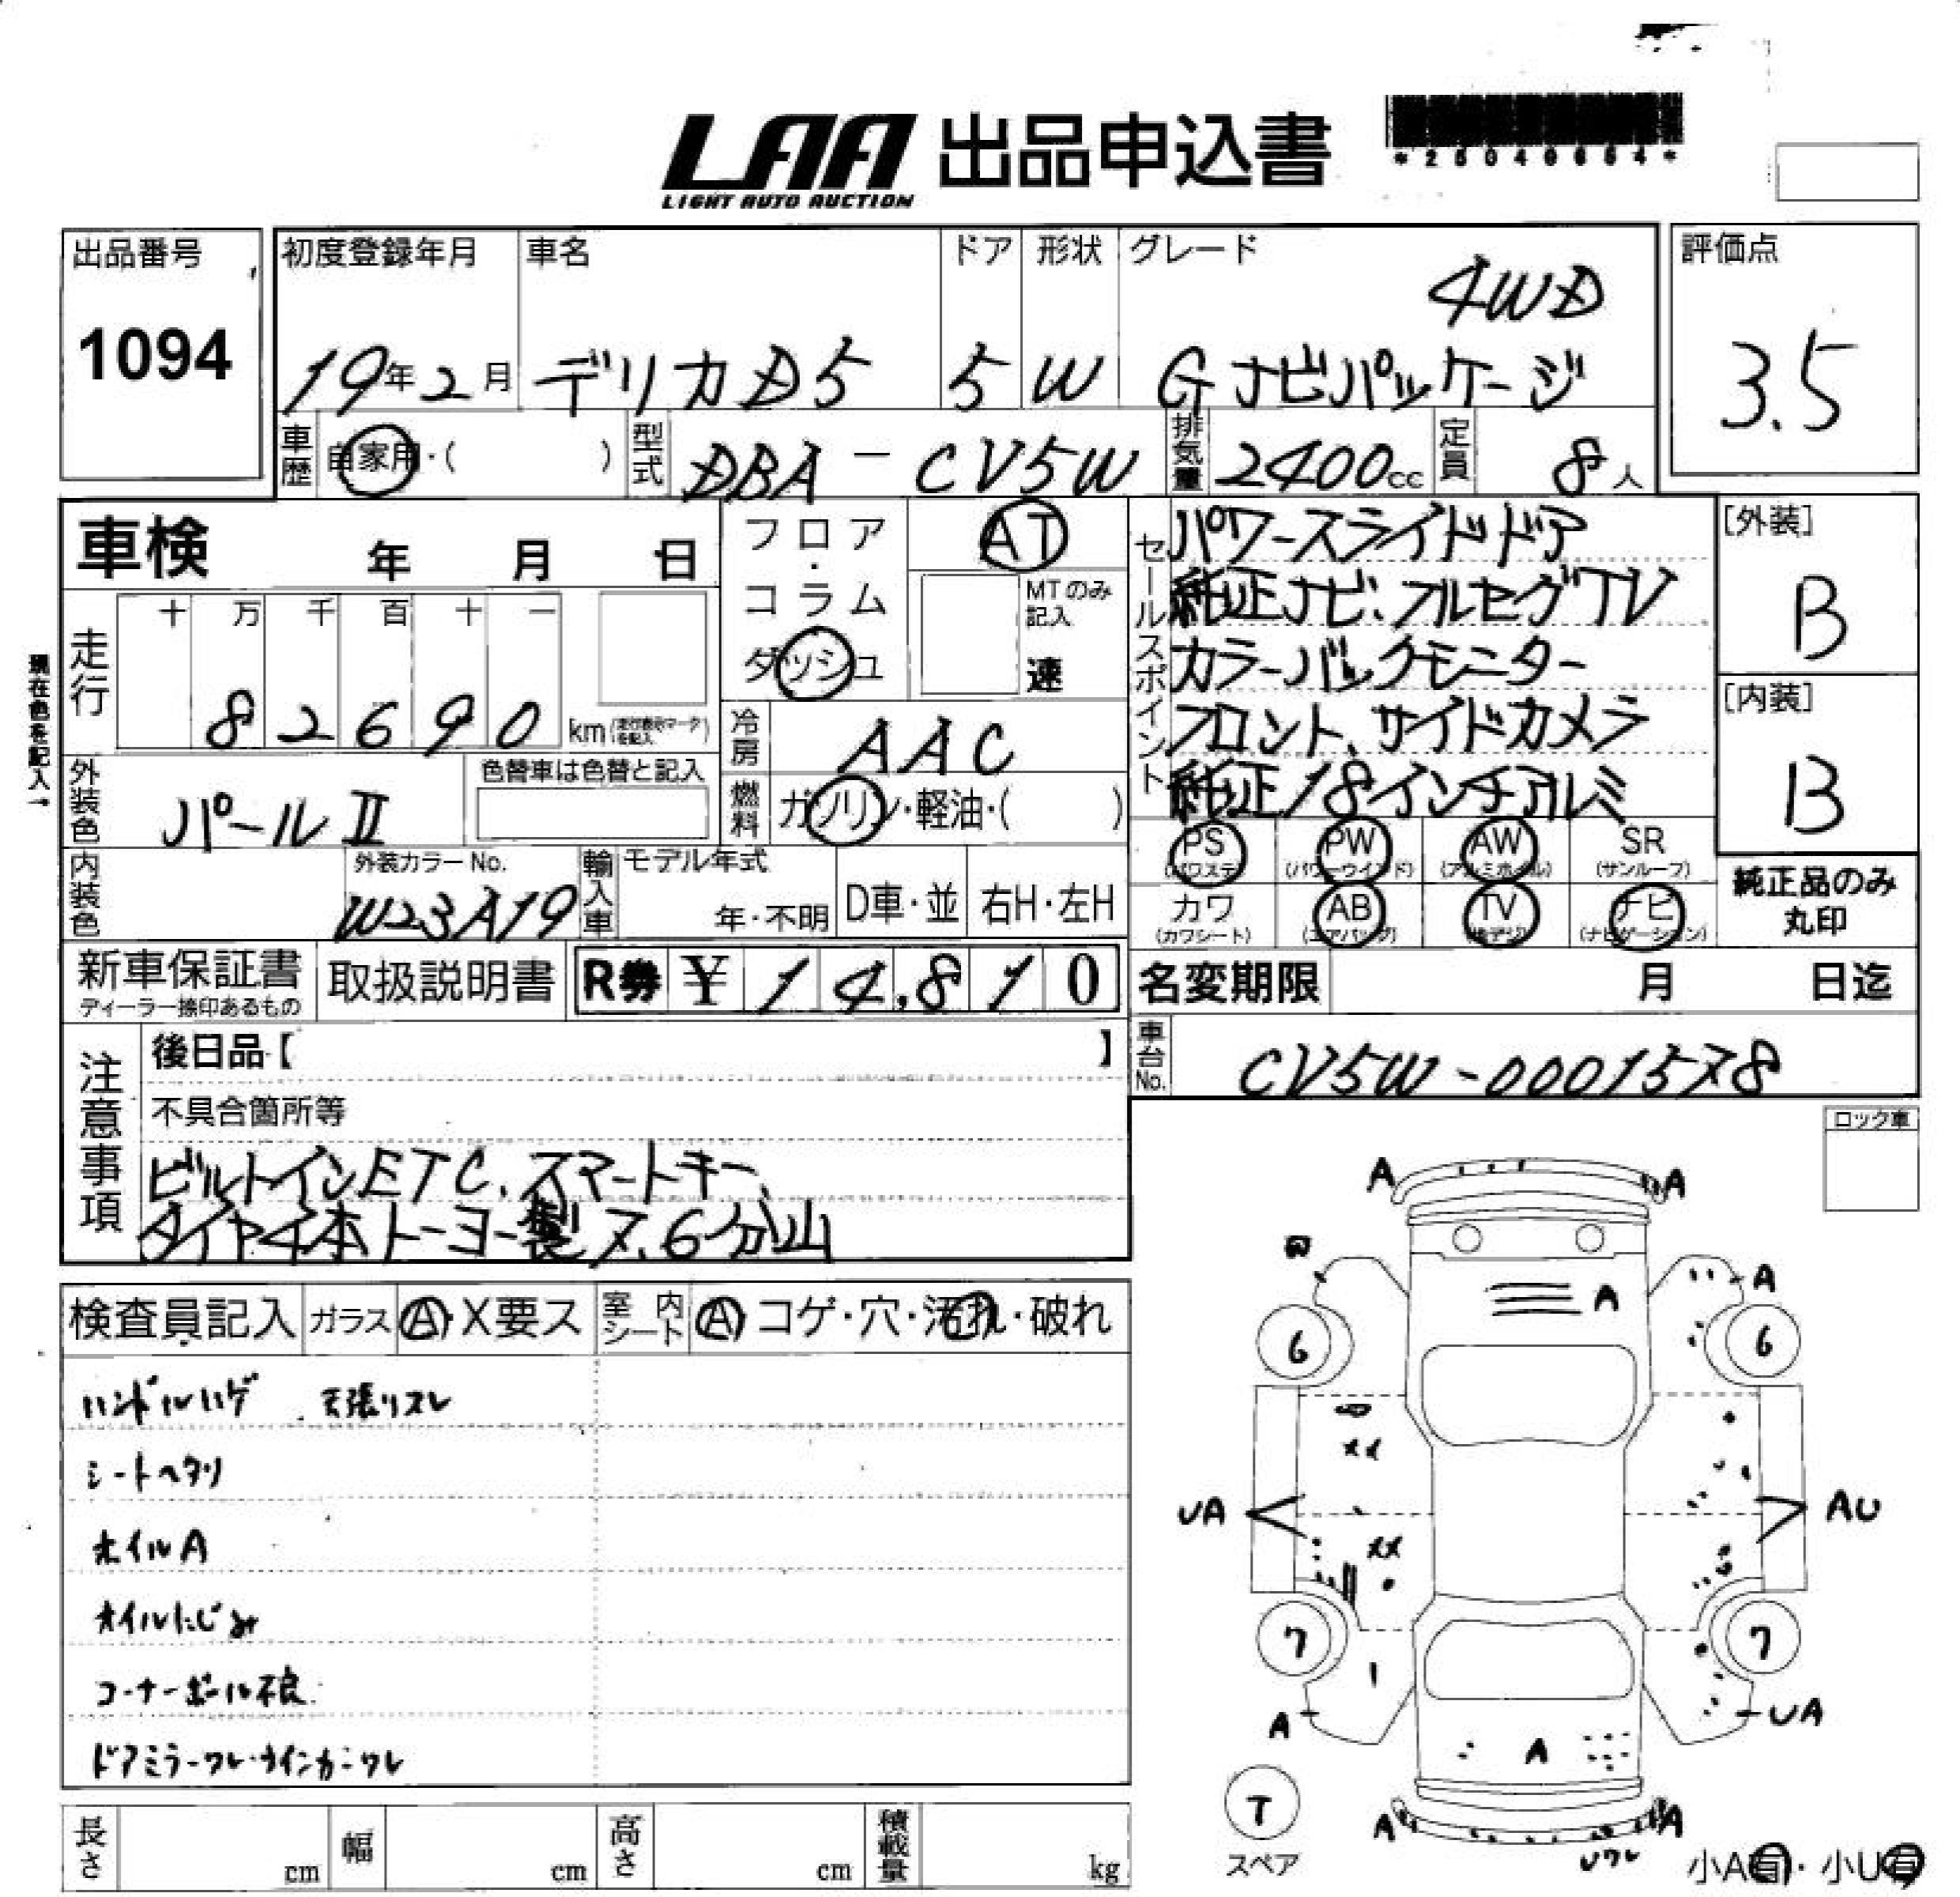 LAA 出品申込書
LIGHT AUTO AUCTION
*25040654*
出品番号
1094
初度登録年月 車名 ドア 形状 グレード
4WD
19年2月 デリカD5 5 W Gナビパッケージ
評価点
3.5
車歴 自家用・( ) 型式 DBA-CV5W 排気量 2400cc 定員 8人
車検 年 月 日
フロア・コラム ダッシュ
AT
MTのみ記入
速
セールスポイント
パワースライドドア
純正ナビ、フルセグTV
カラーバックモニター
フロント、サイドカメラ
純正18インチアルミ
[外装]
B
[内装]
B
現在色を記入→
走行 十 万 千 百 十 一
82690 km (走行表示マークを記入)
冷房 AAC
外装色 パールⅡ 色替車は色替と記入
燃料 ガソリン・軽油・( )
PS (パワステ) PW (パワーウインド) AW (アルミホイル) SR (サンルーフ)
カワ (カワシート) AB (エアバッグ) TV (地デジ) ナビ (ナビゲーション)
純正品のみ丸印
内装色 外装カラーNo. W23A19 輸入車 モデル年式 年・不明 D車・並 右H・左H
新車保証書 ディーラー捺印あるもの 取扱説明書 R券 ¥14,810 名変期限 月 日迄
車台No. CV5W-0001578
注意事項
後日品【 】
不具合箇所等
ビルトインETC、スマートキー、
タイヤ4本トーヨー製7、6分山
ロック車
検査員記入 ガラス A・X要ス 室内シート A コゲ・穴・汚れ・破れ
ハンドルハゲ 天張リスレ
シートヘタリ
ホイルA
オイルにじみ
コーナーポール不良
ドアミラーワレ・ウインカーワレ
A A
A
A
6 6
UA AU
7 7
A UA
A
T
スペア
A A
Uワレ
小A有・小U有
長さ cm 幅 cm 高さ cm 積載量 kg